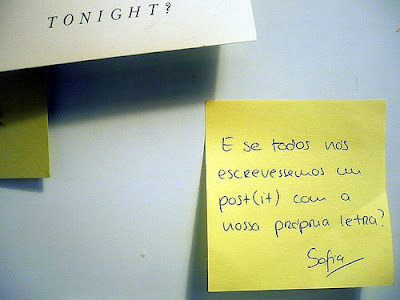 TONIGHT?
E se todos nós
escrevessemos um
post(it) com a
nossa própria letra?
Sofia